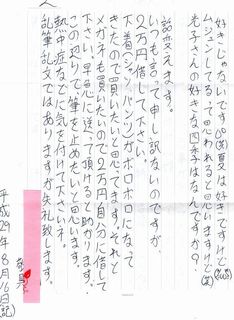 好きじゃないです(笑)夏は好きですけど(笑)
ムジュンしてるって思われると思いますけど(笑)
光子さんの好きな四季はなんですか?
話変えます。
いつも言って申し訳ないのですが、
2万円借して下さい。
下着(シャツ、パンツ)がボロボロになって
きたので買いたいと思ってます。それと
メガネも買いたいので2万円自分に借して
下さい。早急に送って頂けると助かります。
この辺りで筆を止めたいと思います。
熱中症などに気を付けて下さいネ。
乱筆乱文ではありますが失礼致します。
敬具
平成29年8月16日(記)